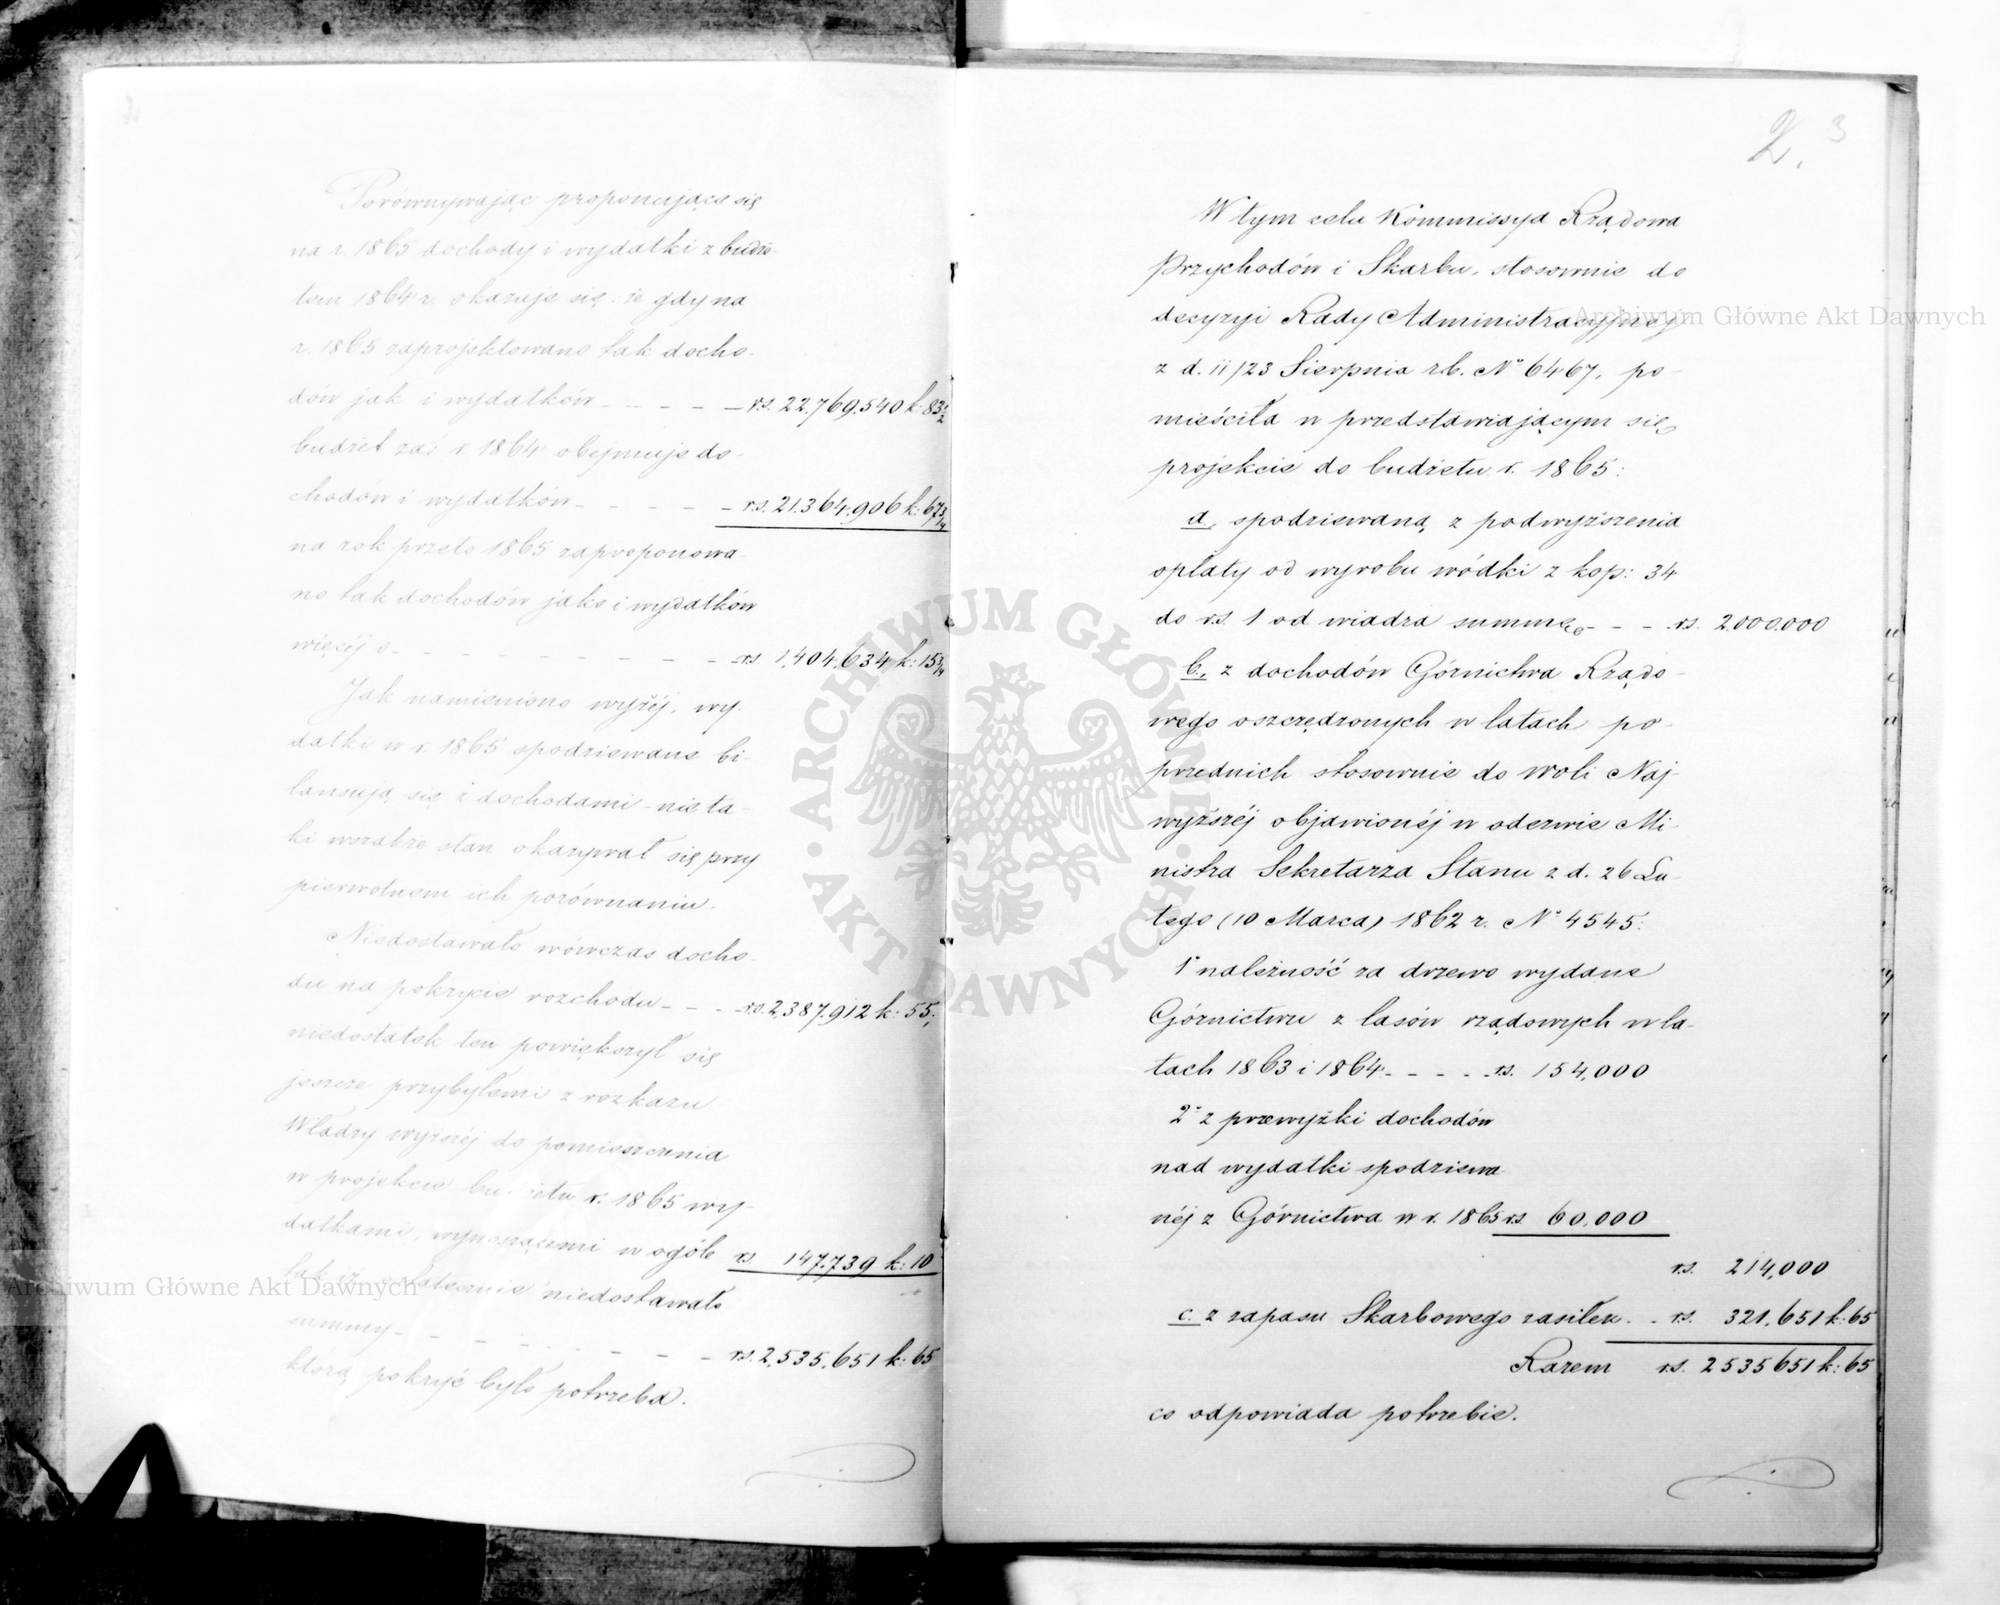 Porównywając proponujące się
na r. 1865 dochody i wydatki z budże-
tem 1864 r. okazuje się: że gdy na
r. 1865 zaprojektowano tak docho-
dów jak i wydatków - - - - rs. 22.769.540 k. 83 1/2
budżet zaś r. 1864 obejmuje do-
chodów i wydatków - - - - - rs. 21.364.906 k. 67 3/4
na rok przeto 1865 zapropononowa-
no tak dochodów jako i wydatków
więcéj o - - - - - - - - rs. 1.404.634 k: 15 3/4
Jak namieniono wyżéj, wy-
datki w r. 1865 spodziewane bi-
lansują się z dochodami - nie ta-
ki wszakże stan okazywał się przy
pierwotnem ich porównaniu.
Niedostawało wówczas docho-
du na pokrycie rozchodu - - - rs. 2.387.912 k: 55;
niedostatek ten powiększył się
jeszcze przybyłemi z rozkazu
Władzy wyższéj do pomieszczenia
w projekcie budżetu r. 1865 wy-
datkami, wynoszącemi w ogóle rs. 147.739 k: 10
tak iż ostatecznie niedostawało
summy - - - - - - - rs. 2.535.651 k: 65
którą pokryć było potrzeba.
2. 3
W tym celu Kommissya Rządowa
Przychodów i Skarbu, stosownie do
decyzyi Rady Administracyjnéj
z d. 11/23 Sierpnia r.b. No 6467, po-
mieściła w przedstawiającym się
projekcie do budżetu r. 1865:
a, spodziewaną z podwyższenia
opłaty od wyrobu wódki z kop: 34
do rs. 1 od wiadra summę - - - rs. 2.000.000
b, z dochodów Górnictwa Rządo-
wego oszczędzonych w latach po-
przednich stosownie do woli Naj-
wyższéj objawionéj w odezwie Mi-
nistra Sekretarza Stanu z d. 26 Lu-
tego (10 Marca) 1862 r. No 4545:
1o należność za drzewo wydane
Górnictwu z lasów rządowych w la-
tach 1863 i 1864 - - - - rs. 154,000
2o z przewyżki dochodów
nad wydatki spodziewa-
néj z Górnictwa w r. 1865 rs. 60.000
rs. 214,000
c. z zapasu Skarbowego zasiłek - - rs. 321.651 k: 65
Razem rs. 2535651 k: 65
co odpowiada potrzebie.
Archiwum Główne Akt Dawnych
Archiwum Główne Akt Dawnych
· ARCHIWUM GŁÓWNE · AKT DAWNYCH